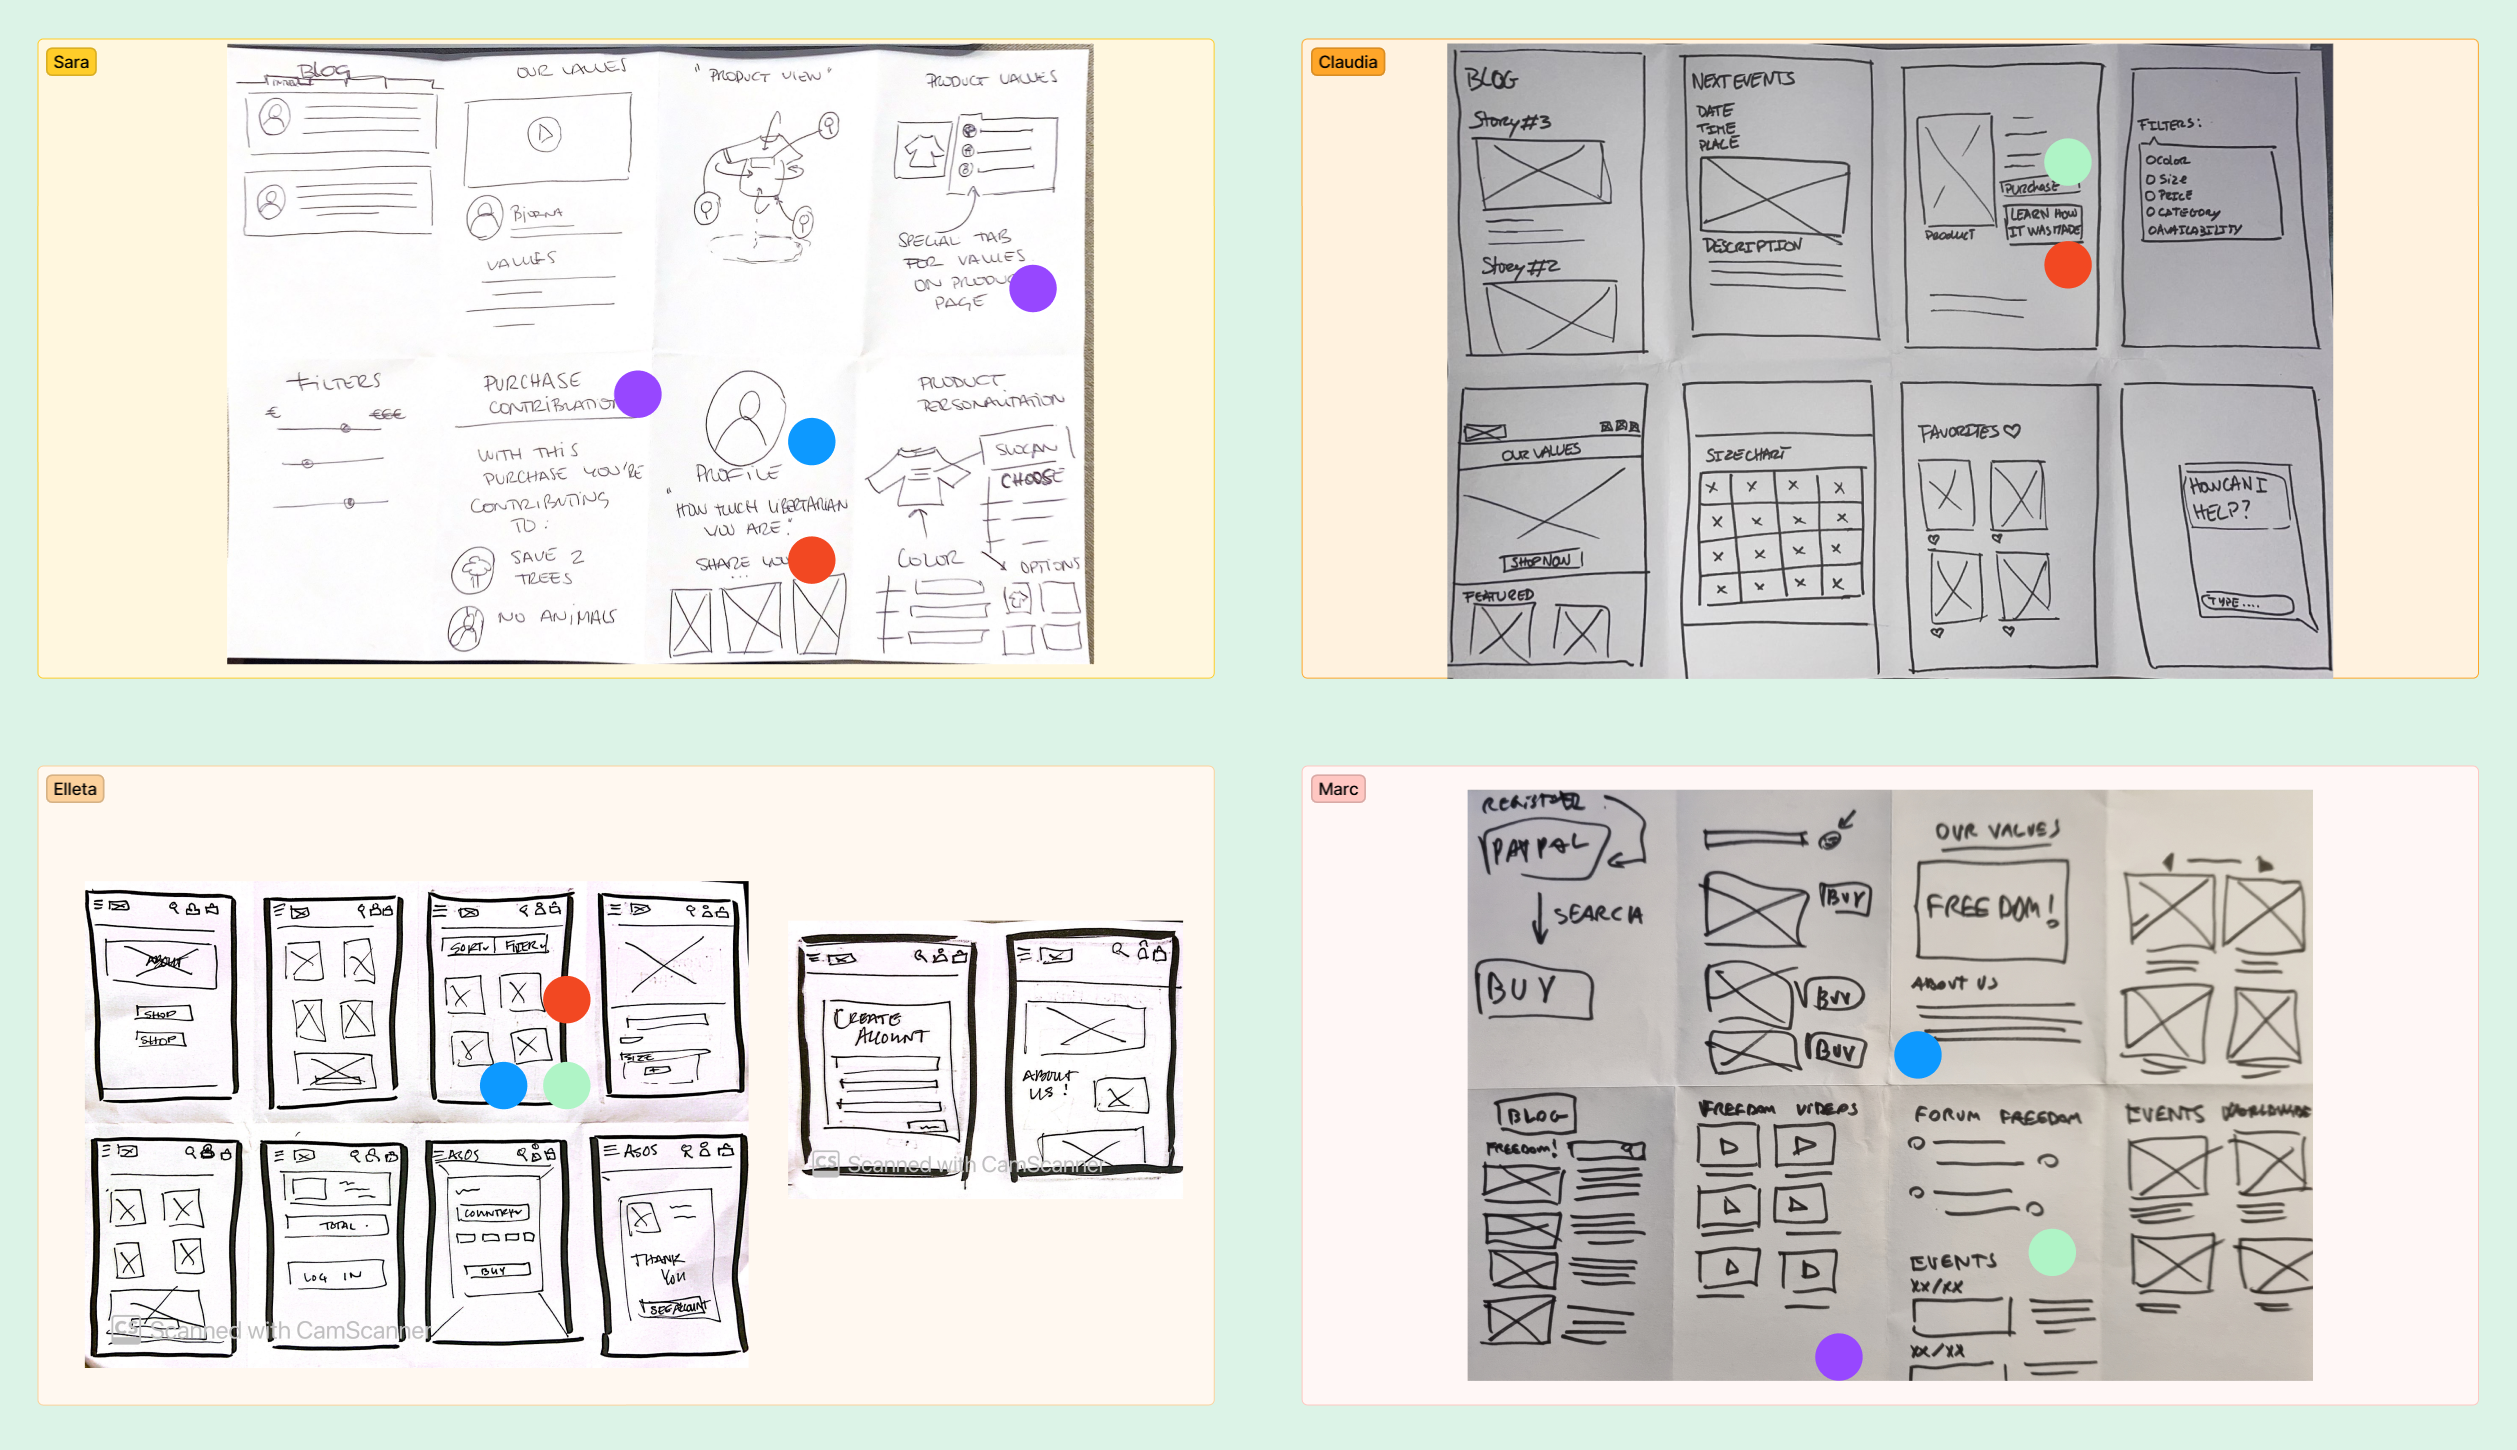 Sara
BLOG
OUR VALUES
"PRODUCT VIEW"
PRODUCT VALUES
Bjorna
VALUES
SPECIAL TAB
FOR VALUES
ON PRODUC
PAGE
FILTERS
€ €€€
PURCHASE
CONTRIBUTION
WITH THIS
PURCHASE YOU'RE
CONTRIBUTING
TO:
SAVE 2
TREES
NO ANIMALS
PROFILE
"HOW MUCH LIBERTARIAN
YOU ARE"
SHARE YOU
...
PRODUCT
PERSONALITATION
SLOGAN
CHOOSE
COLOR
OPTIONS
Claudia
BLOG
Story #3
Story #2
NEXT EVENTS
DATE
TIME
PLACE
DESCRIPTION
PRODUCT
PURCHASE
LEARN HOW
IT WAS MADE
FILTERS:
COLOR
SIZE
PRICE
CATEGORY
AVAILABILITY
OUR VALUES
SHOP NOW
FEATURED
SIZE CHART
FAVORITES
HOW CAN I
HELP?
TYPE....
Elleta
ABOUT
SHOP
SHOP
SORT FILTER
SIZE
TOTAL
LOG IN
ASOS
COUNTRY
BUY
ASOS
THANK
YOU
SEE ACCOUNT
CS Scanned with CamScanner
CREATE
ACCOUNT
ABOUT
US!
CS Scanned with CamScanner
Marc
REGISTER
PAYPAL
SEARCH
BUY
BUY
BUY
BUY
OUR VALUES
FREEDOM!
ABOUT US
BLOG
FREEDOM!
FREEDOM VIDEOS
FORUM FREEDOM
EVENTS
XX/XX
XX/XX
EVENTS WORLDWIDE